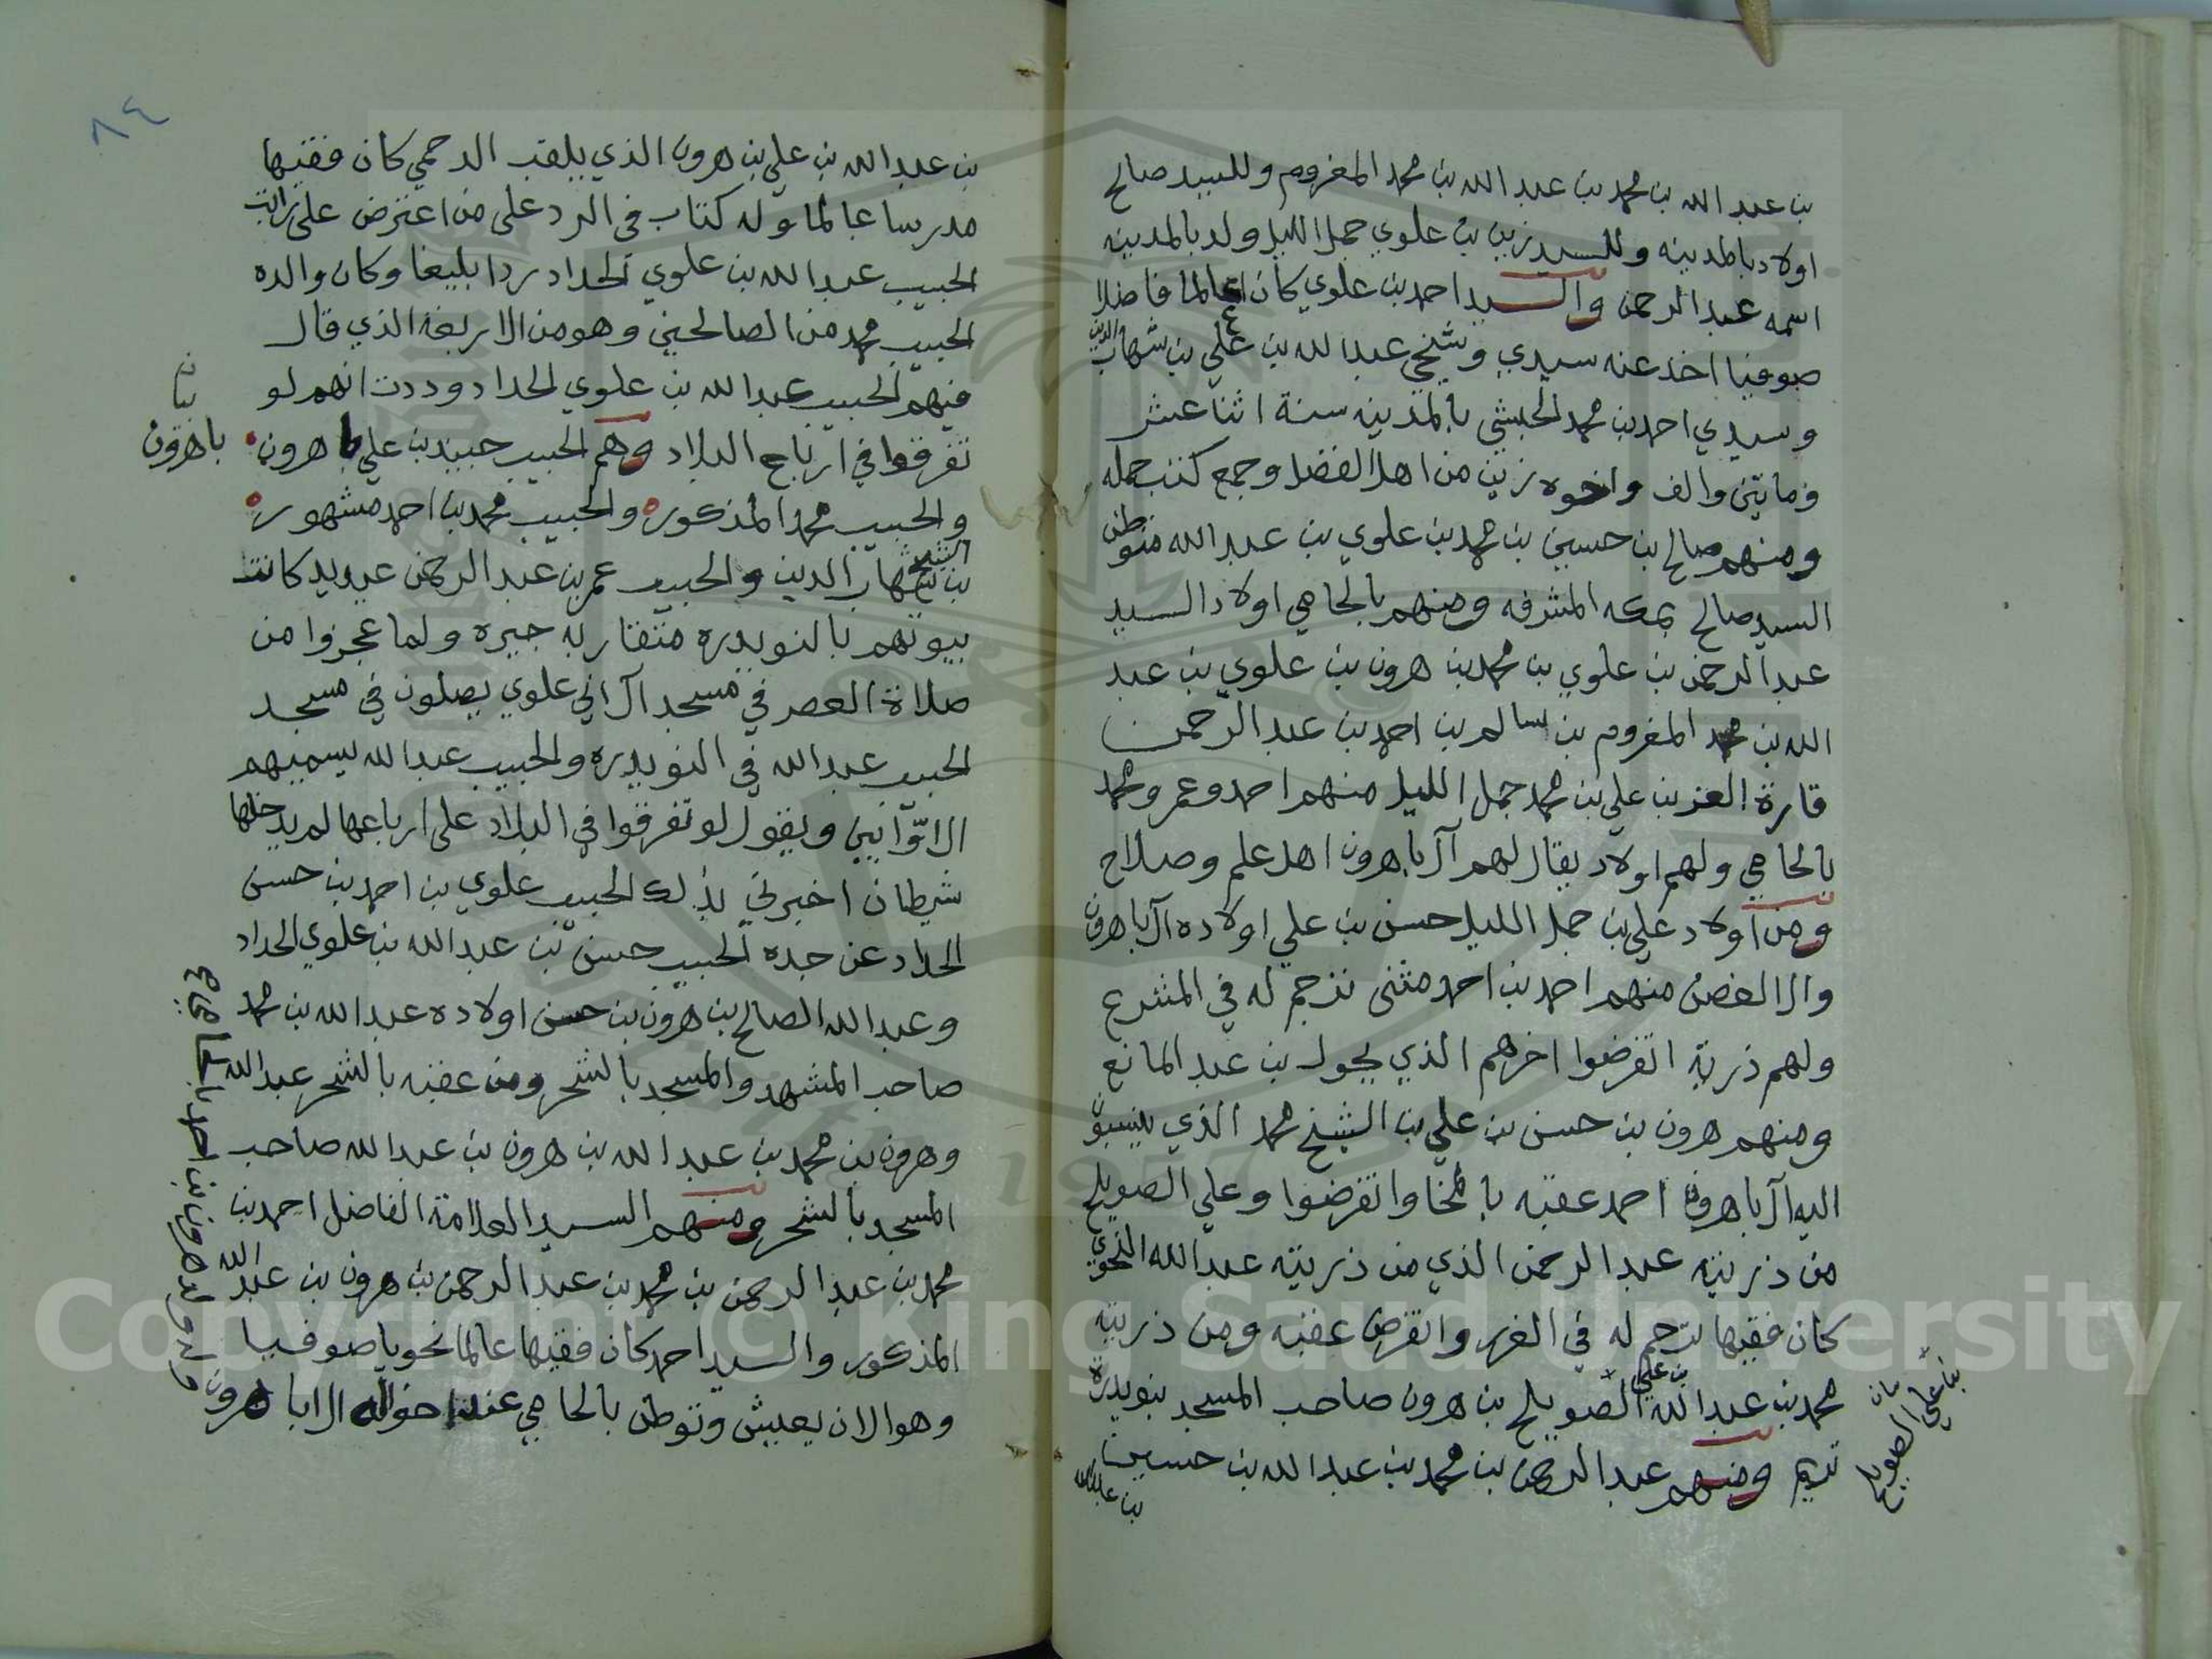 بن عبد الله بن محمد بن عبد الله بن محمد المغروم وللسيد صالح
اولاد بالمدينه وللسيد زين بن علوي جمل الليل ولد بالمدينه
اسمه عبد الرحمن والسيد احمد بن علوي كان عالما فاضلا
صوفيا اخذ عنه سيدي وشيخي عبد الله بن علي بن شهاب الدين
وسيدي احمد بن محمد الحبشي بالمدينه سنة اثنا عشر
ومايتين والف واخوه زين من اهل الفضل وجمع كتب جمله
ومنهم صالح بن حسين بن محمد بن علوي بن عبد الله متوطن
السيد صالح بمكه المشرفه ومنهم بالحامي اولاد السيد
عبد الرحمن بن علوي بن محمد بن هرون بن علوي بن عبد
الله بن محمد المغروم بن سالم بن احمد بن عبد الرحمن
قارة العز بن علي بن محمد جمل الليل منهم احمد وعمر ومحمد
بالحامي ولهم اولاد يقال لهم آل باهرون اهل علم وصلاح
ومن اولاد علي بن جمل الليل حسن بن علي اولاده آل باهرون
وال الغصن منهم احمد بن احمد مثنى ترجم له في المشرع
ولهم ذرية انقرضوا اخرهم الذي بجول بن عبد المانع
ومنهم هرون بن حسن بن علي بن الشيخ محمد الذي ينسبون
اليه آل باهرون احمد عقبه بالمخا وانقرضوا وعلي الصويلح
من ذريته عبد الرحمن الذي من ذريته عبد الله النحوي
كان فقيها ترجم له في الغرر وانقرض عقبه ومن ذريته
محمد بن عبد الله بن علي الصويلح بن هرون صاحب المسجد بنويدرة
تريم ومنهم عبد الرحمن بن محمد بن عبد الله بن حسين
بن عبد الله
بيان
بن علي الصويلح
٨٤
بن عبد الله بن علي بن هرون الذي يلقب الدحمي كان فقيها
مدرسا عالما وله كتاب في الرد على من اعترض على راتب
الحبيب عبد الله بن علوي الحداد ردا بليغا وكان والده
الحبيب محمد من الصالحين وهو من الاربعة الذي قال
فيهم الحبيب عبد الله بن علوي الحداد وددت انهم لو
تفرقوا في ارباع البلاد وهم الحبيب جنيد بن علي باهرون
والحبيب محمد المذكور والحبيب محمد بن احمد مشهور
بن الشيخ شهاب الدين والحبيب عمر بن عبد الرحمن عيديد كانت
بيوتهم بالنويدره متقاربه جيره ولما عجزوا من
صلاة العصر في مسجد آل ابي علوي يصلون في مسجد
الحبيب عبد الله في النويدره والحبيب عبد الله يسميهم
الاوّابين ويقول لو تفرقوا في البلاد على ارباعها لم يدخلها
شيطان اخبرني بذلك الحبيب علوي بن احمد بن حسن
الحداد عن جده الحبيب حسن بن عبد الله بن علوي الحداد
وعبد الله الصالح بن هرون بن حسن اولاده عبد الله بن محمد
صاحب المشهد والمسجد بالشحر ومن عقبه بالشحر عبد الله
وهرون بن محمد بن عبد الله بن هرون بن عبد الله صاحب
المسجد بالشحر ومنهم السيد العلامة الفاضل احمد بن
محمد بن عبد الرحمن بن محمد بن عبد الرحمن بن هرون بن عبد الله
المذكور والسيد احمد كان فقيها عالما نحويا صوفيا
وهو الان يعيش وتوطن بالحامي عند اخواله ال باهرون
بيان
باهرون
وله ولد هرون بن احمد
Copyright © King Saud University
1957